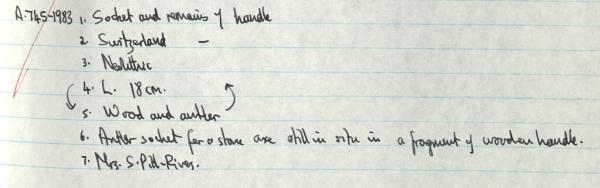 A.745-1983 1. Socket and remains of handle
2. Switzerland —
3. Neolithic
4. L. 18 cm.
5. Wood and antler
6. Antler socket for a stone axe still in situ in a fragment of wooden handle.
7. Mrs. S. Pitt-Rivers.